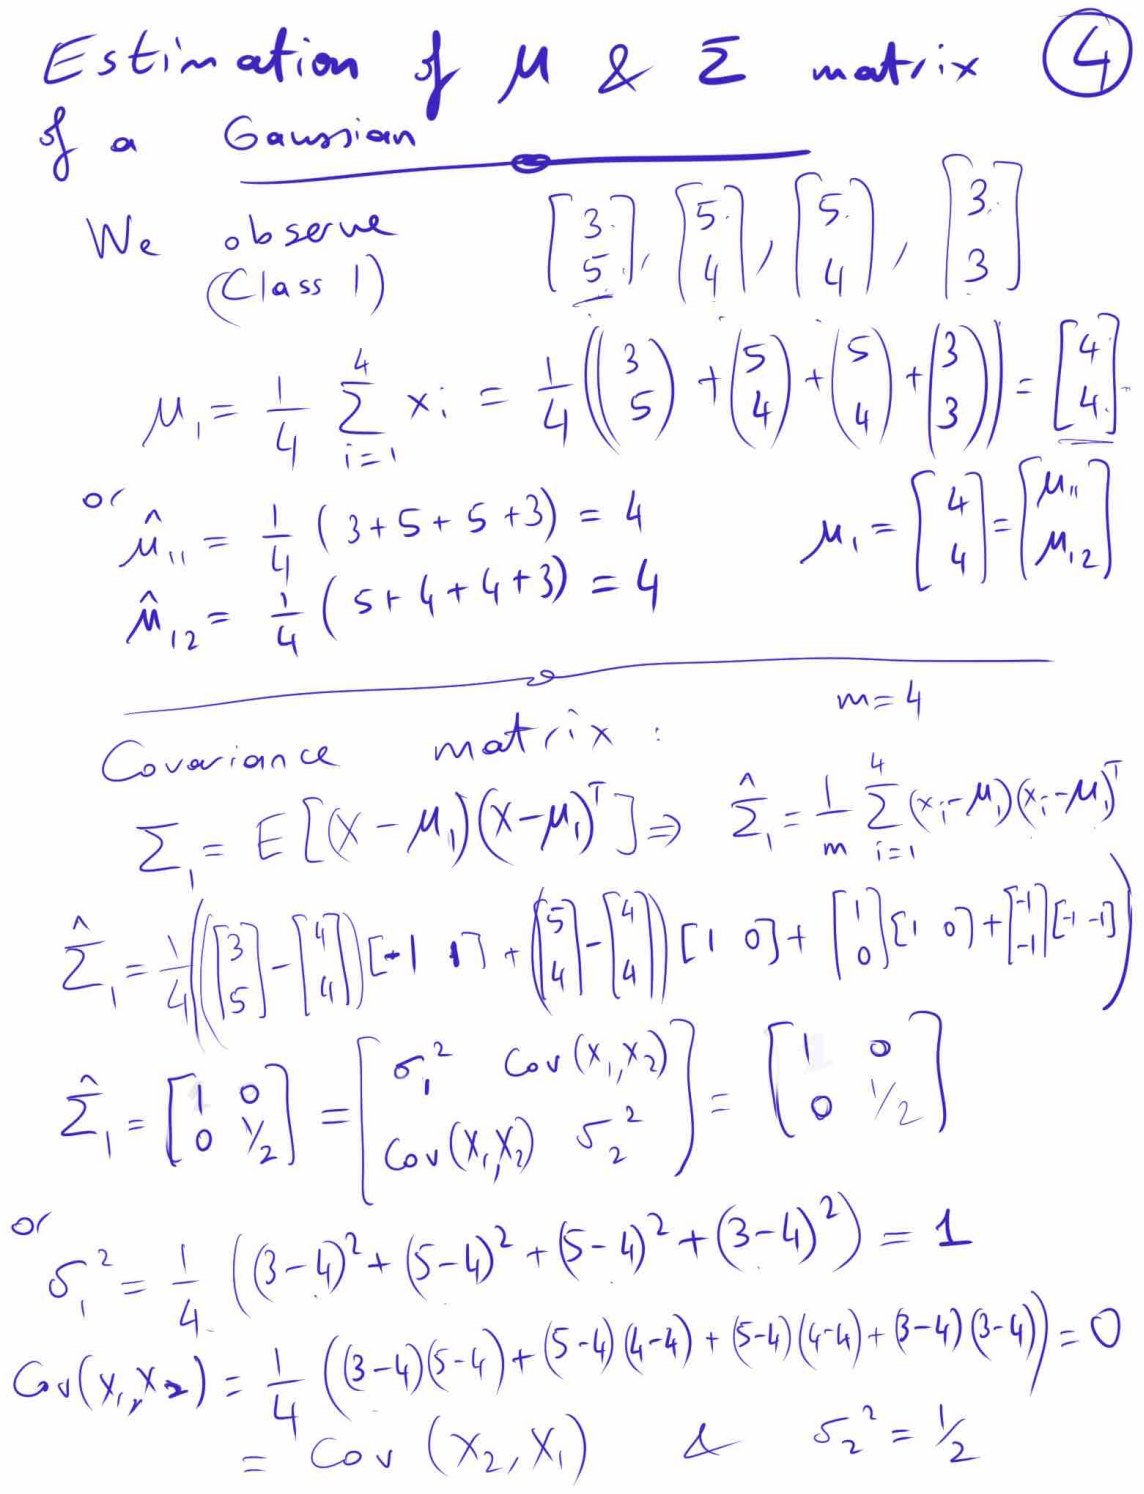 Estimation of μ & Σ matrix ④
of a Gaussian
We observe (Class 1) [3 5], [5 4], [5 4], [3 3]
μ₁ = 1/4 Σ_{i=1}^{4} xᵢ = 1/4 ((3 5) + (5 4) + (5 4) + (3 3)) = [4 4]
or
μ̂₁₁ = 1/4 (3+5+5+3) = 4 μ₁ = [4 4] = [μ₁₁ μ₁₂]
μ̂₁₂ = 1/4 (5+4+4+3) = 4
m=4
Covariance matrix :
Σ₁ = E[(X-μ₁)(X-μ₁)ᵀ] ⇒ Σ̂₁ = 1/m Σ_{i=1}^{4} (xᵢ-μ₁)(xᵢ-μ₁)ᵀ
Σ̂₁ = 1/4 (([3 5] - [4 4]) [-1 1] + ([5 4] - [4 4]) [1 0] + [1 0] [1 0] + [-1 -1] [-1 -1])
Σ̂₁ = [1 0 0 1/2] = [σ₁² Cov(X₁,X₂) Cov(X₁,X₂) σ₂²] = [1 0 0 1/2]
or
σ₁² = 1/4 ((3-4)² + (5-4)² + (5-4)² + (3-4)²) = 1
Cov(X₁,X₂) = 1/4 ((3-4)(5-4) + (5-4)(4-4) + (5-4)(4-4) + (3-4)(3-4)) = 0
= Cov (X₂, X₁) & σ₂² = 1/2